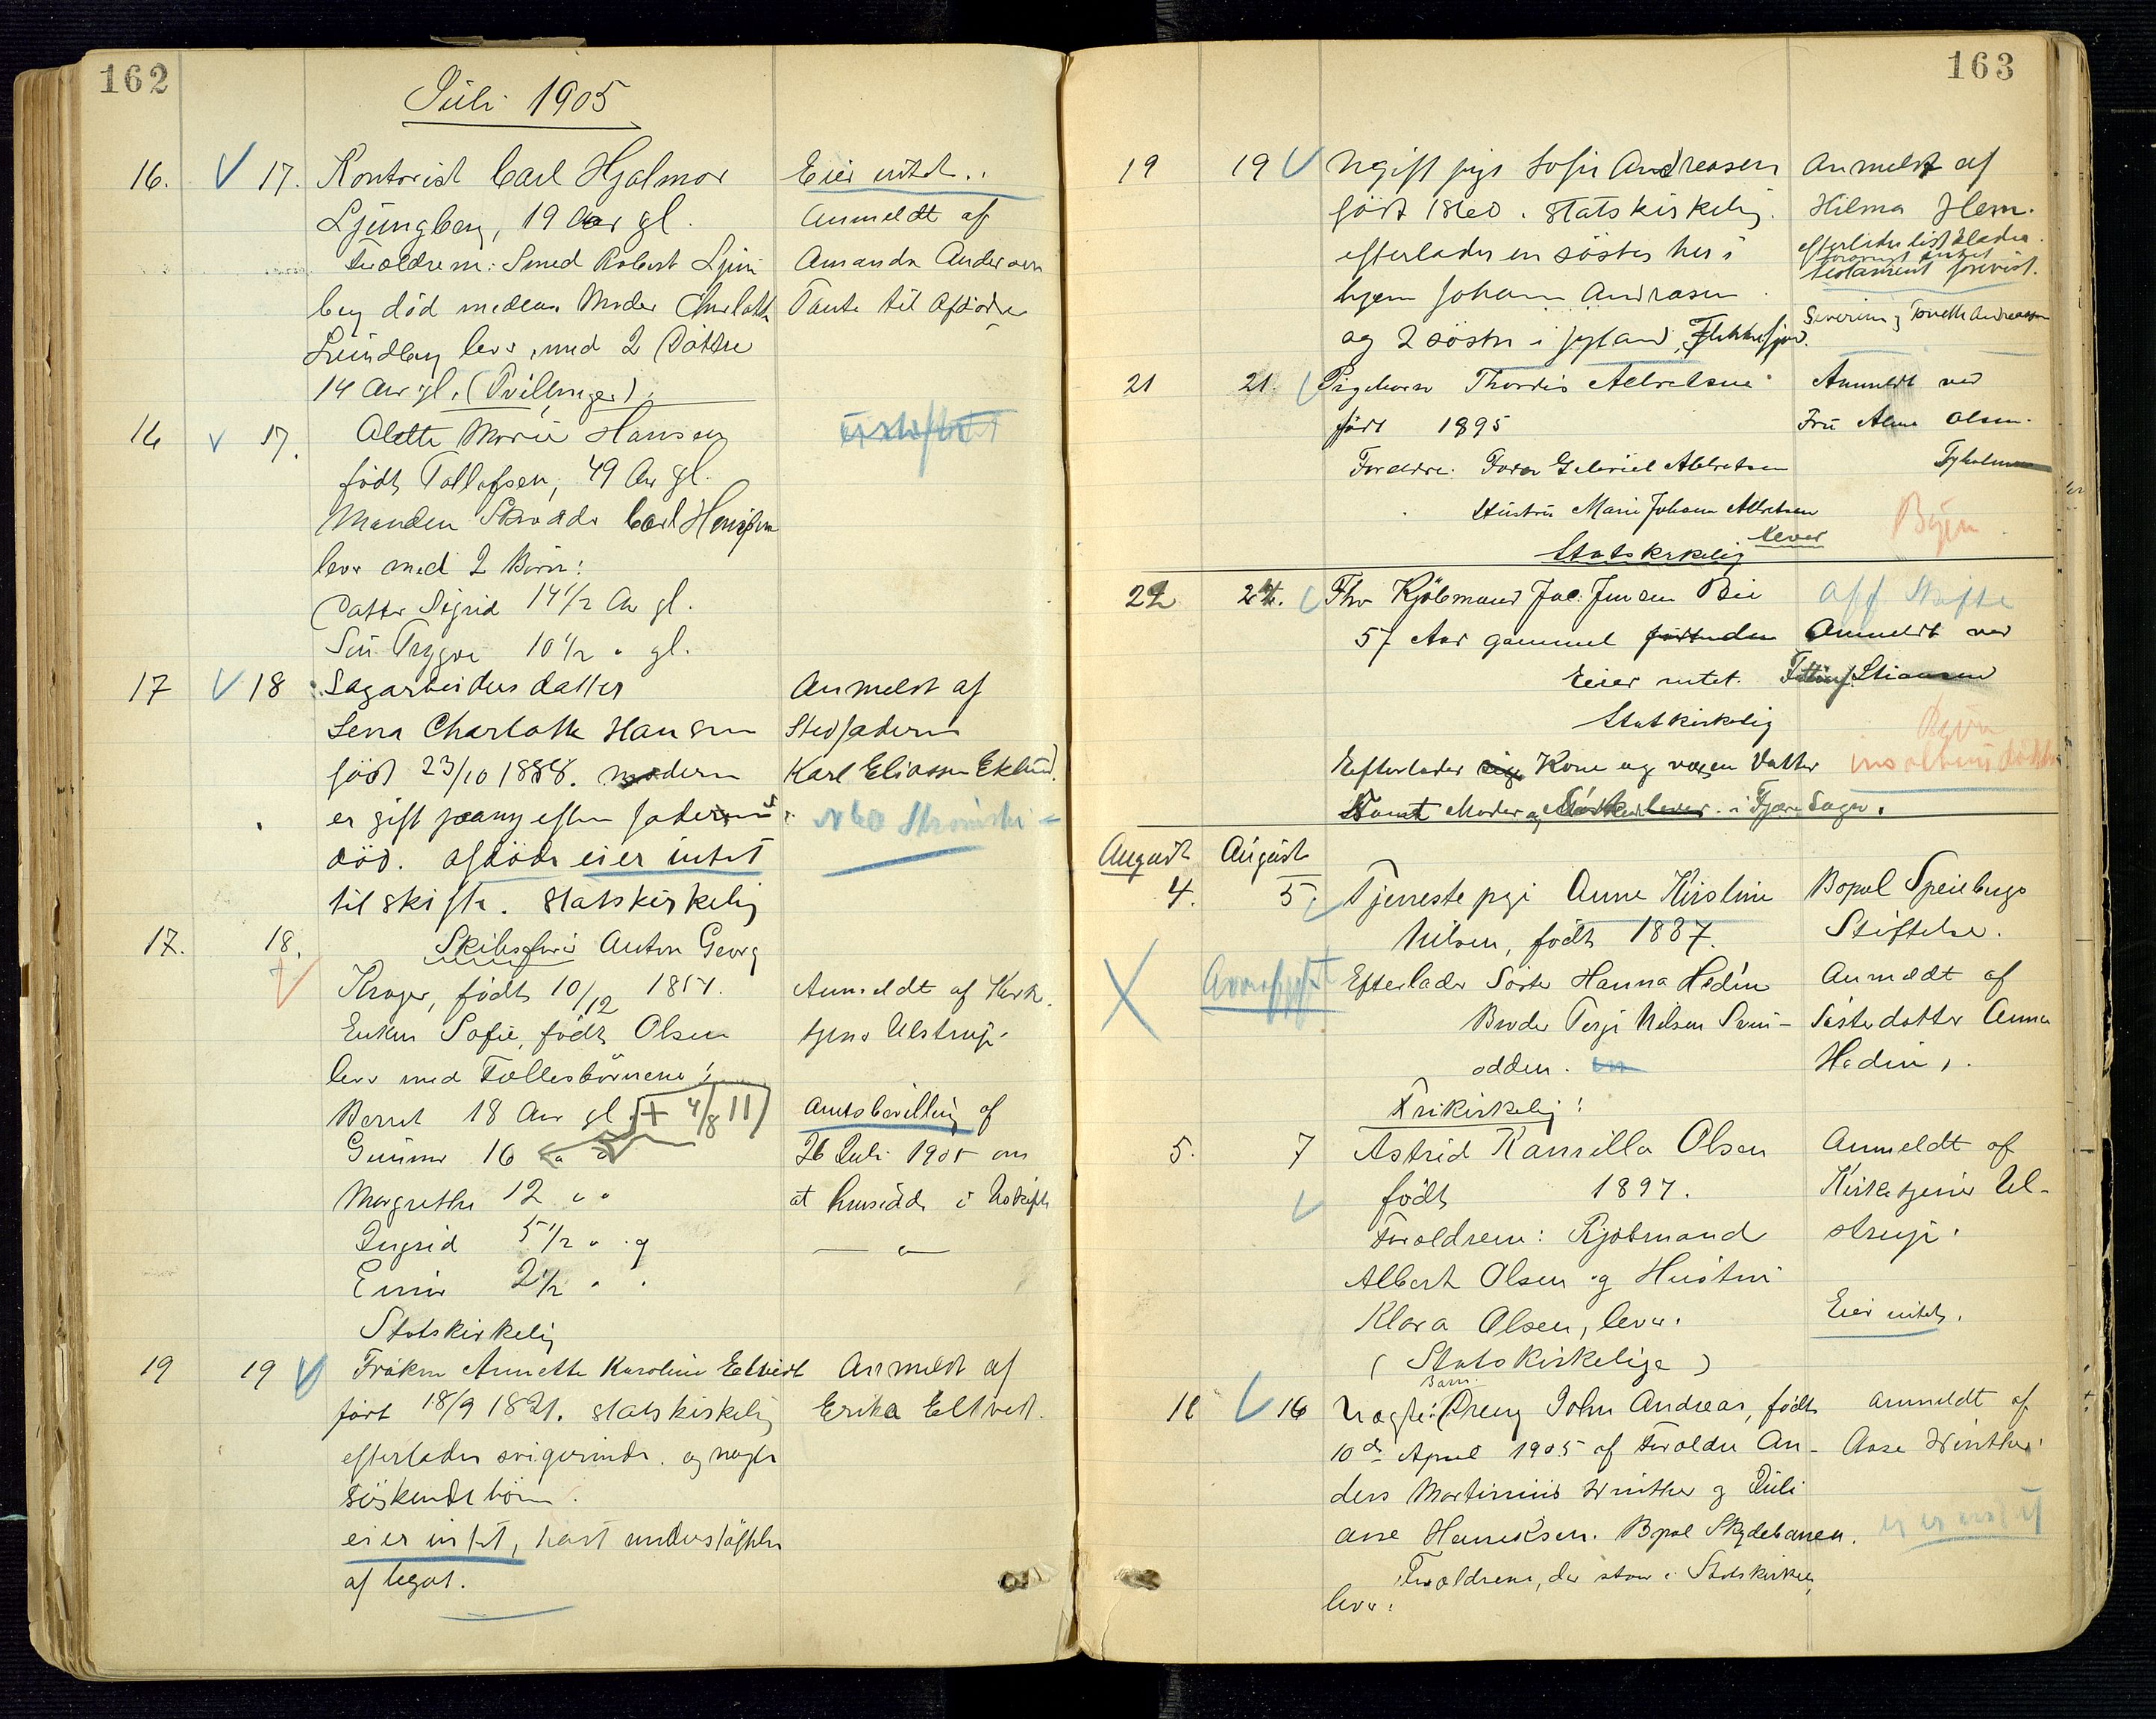 162
Juli 1905
16. 17. Kontorist Carl Hjalmar Eier intet.
Ljungberg, 19 Aar gl. Anmeldt af
Forældrene: Smed Robert Ljun Amanda Andersen
berg død medens Moder Charlotte Tante til Afdøde
Lundberg lever, med 2 Døttre
14 Aar gl. (Tvillinger).
16 17. Alette Marie Hansen
født Tollefsen, 49 Aar gl.
Manden Skræder Carl Hansen
lever med 2 Børn:
Datter Sigrid 14 1/2 Aar gl.
Søn Trygve 10 1/2 " gl.
17 18 Sagarbeiders datter Anmeldt af
Lena Charlotte Hansen Stedfaderen
født 23/10 1888. moderen Karl Eliassen Eklund.
er gift paany efter faderens
død. afdøde eier intet
til skifte. Statskirkelig
17. 18. Anton Georg
Krager, født 10/12 Anmeldt af Kirk.
Enken Sofie, født Olsen tjener Ulstrup.
lever med Fællesbørnene:
Bernt 18 Aar gl + 4/8 11 Amtsbevilling af
Gunnar 16 " " 26 Juli 1905 om
Margrethe 12 " " at hensidde i Uskifte
Ingrid 5 1/2 " " — " —
Einar 2 1/2 " "
Statskirkelig
19 19 Frøken Annette Karoline Eltvedt Anmeldt af
født 18/9 1821. statskirkelig Erika Eltvedt.
efterlader svigerinde. og nogle
søskendebørn.
eier intet, har understøttelse
af legat.
163
19 19 Ugift pige Sofie Andreasen Anmeldt af
født 1860. Statskirkelig. Hilma Hem.
efterlader en søster her i efterlader lidt klæder.
hjem Johanne Andreasen testament forevist.
og 2 søstre i Jylland, Flekkefjord. Severine og Andreasen
21 21. Pigebarn Thordis Albretsen Anmeldt ved
født 1895 Fru Alma Olsen.
Forældre: Gabriel Albretsen Tyholmen
Hustru Marie Johanne Albretsen
lever Byen
Statskirkelig
22 24. Fhv Kjøbmand Jac. Jensen Bie
57 Aar gammel Anmeldt ved
Eier intet. Stiansen
Statskirkelig
Efterlader Kone og voxen Datter
Samt Moder og i Fjære Sogn.
August August
4. 5. Tjenestepige Anne Kirstine Bopæl Speilbergs
Nilsen, født 1837. Stiftelse.
Efterlader Søster Hanna Hedin Anmeldt af
Broder Terje Nilsen Søsterdatter Anna
odden. Hedin.
Frikirkelig!
5. 7 Astrid Kamilla Olsen Anmeldt af
født 1897. Kirketjener Ul-
Forældrene: Kjøbmand strup.
Albert Olsen og Hustru
Klara Olsen, lever. Eier intet.
(Statskirkelige)
Barn.
16 16 Uægte: Dreng John Andreas, født Anmeldt af
10de April 1905 af Forældre An- Aase Winther.
ders Martinius Winther og Juli
ane Henriksen. Bopæl Skydebanen.
Forældrene, der staar i Statskirken,
lever.